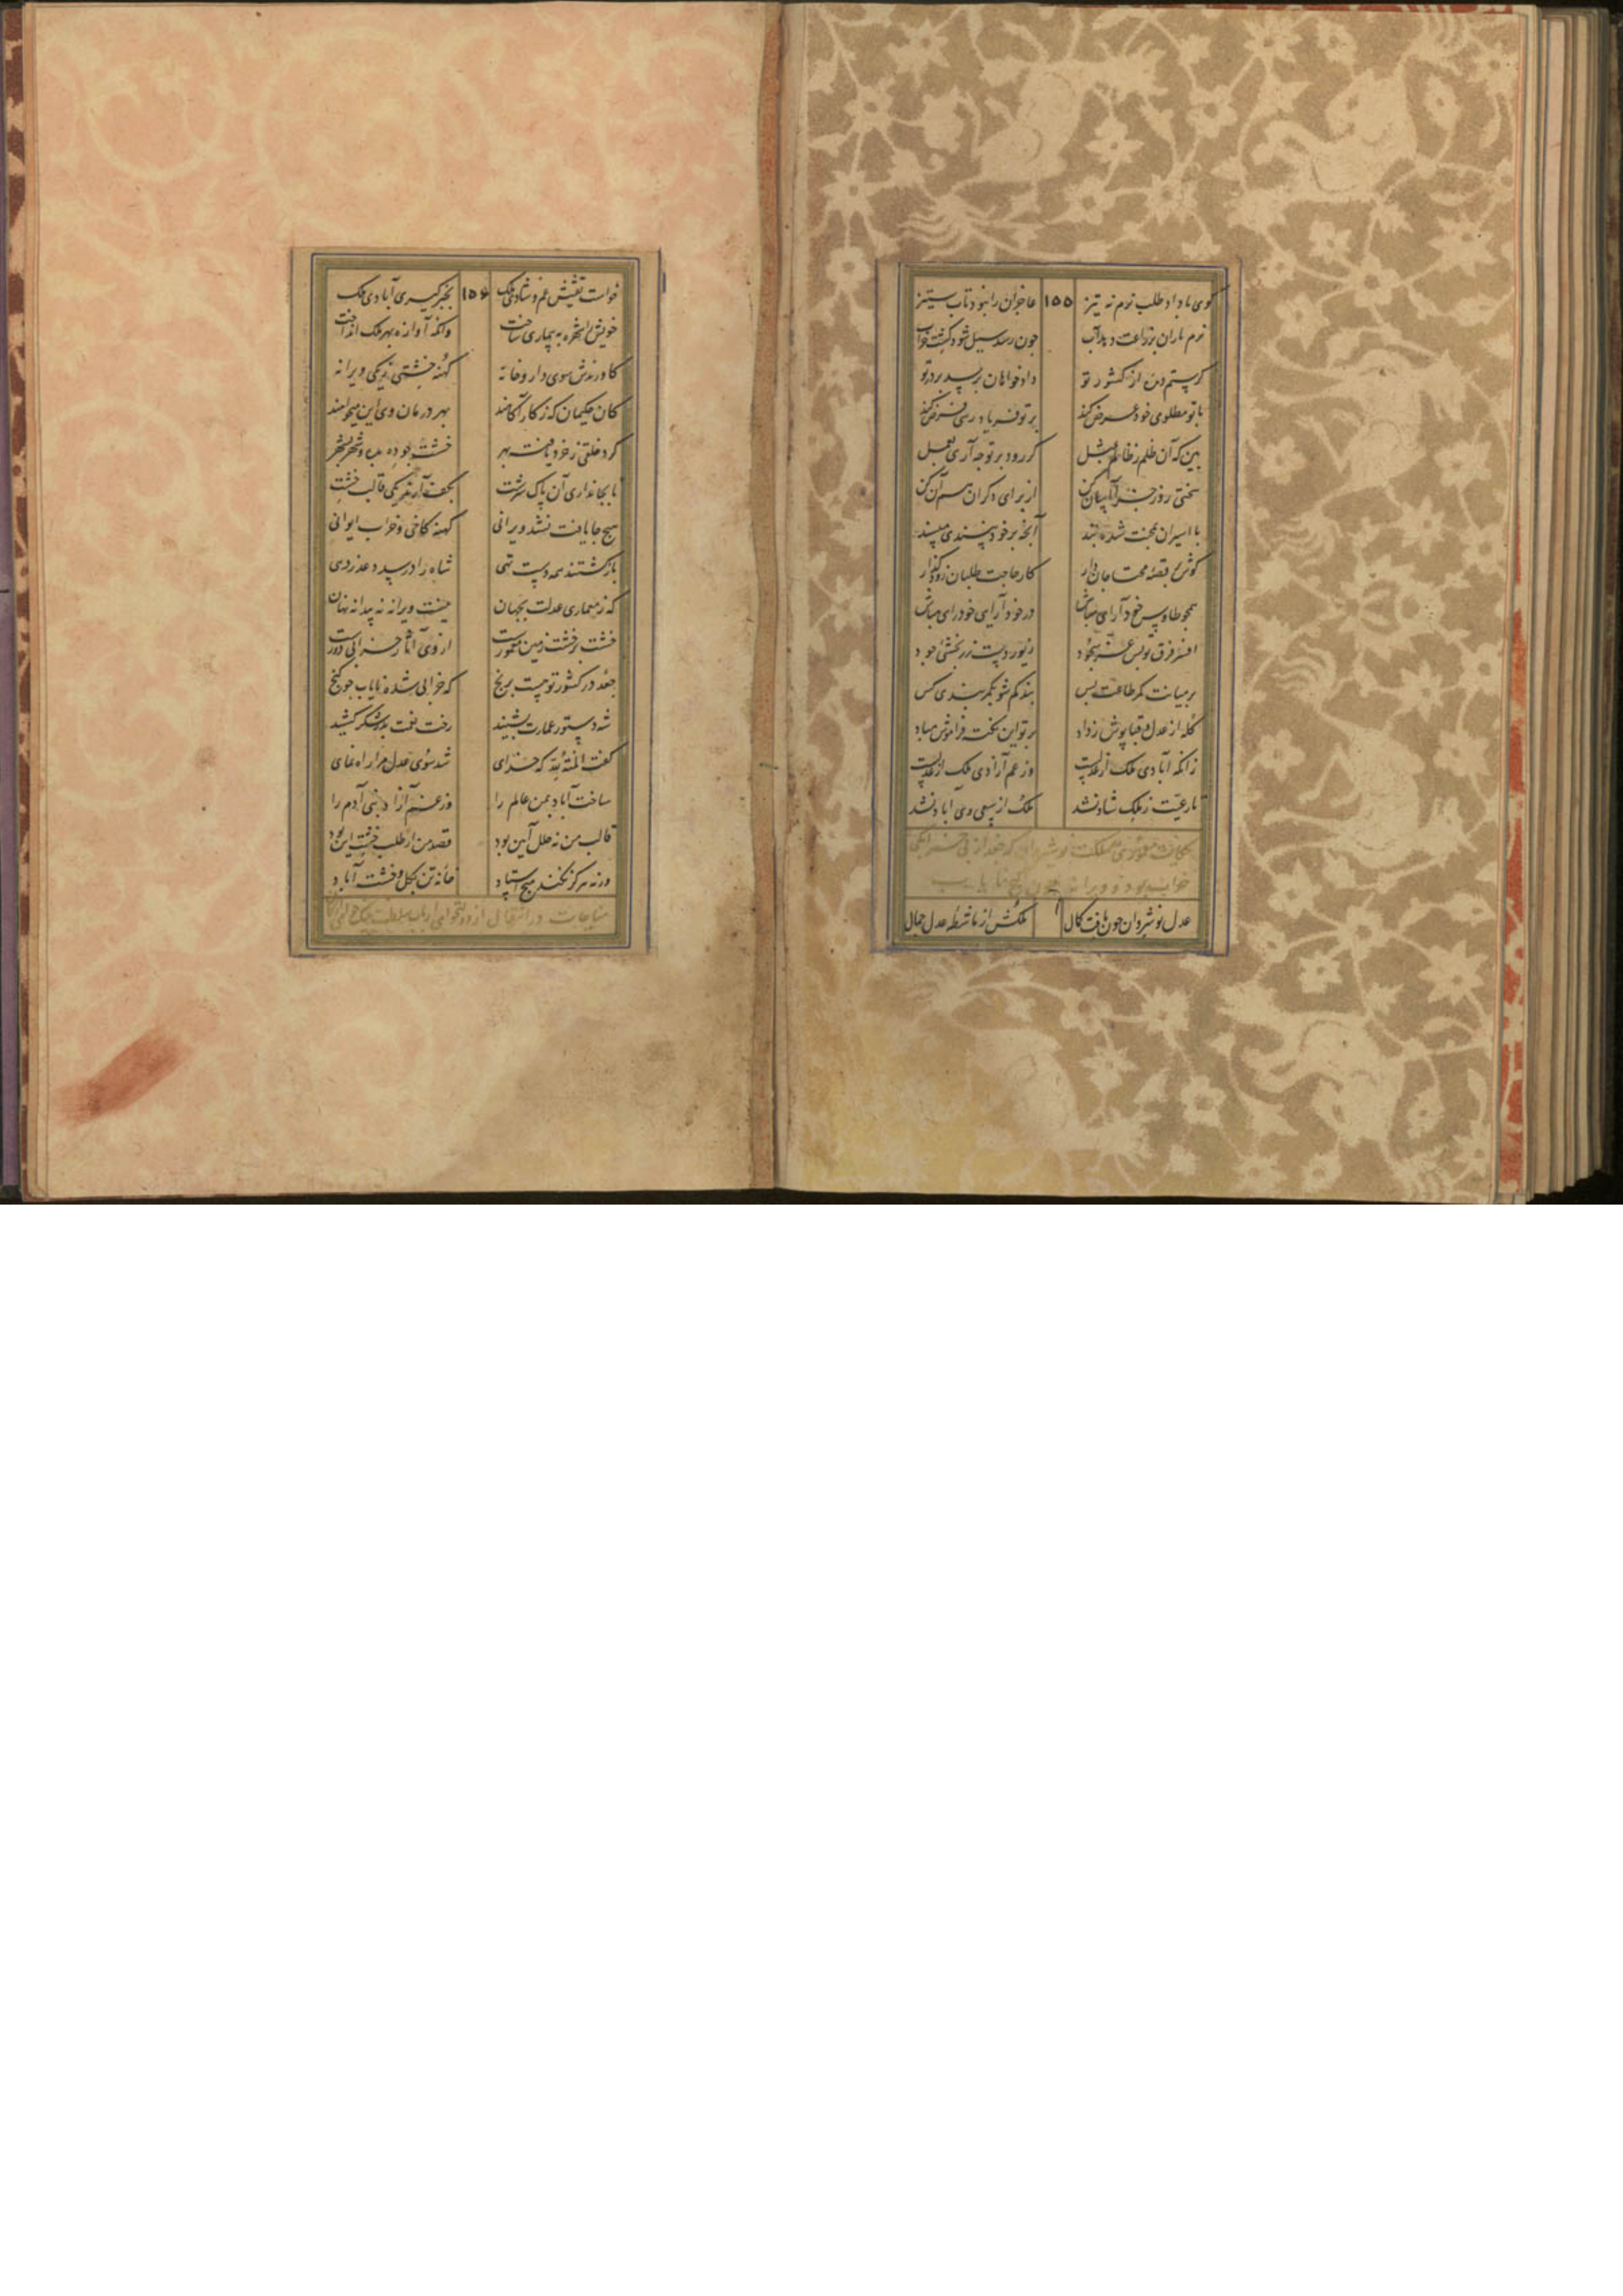 گوی با داد طلب نرم نه تیز ۱۵۵ عاجزان را نبود تاب ستیز
نرم باران بزراعت دهد آب چون رسد سیل شود کشت خراب
گر ستم دیده از کشور تو داد خواهان برسد بر در تو
با تو مظلومی خود عرض کند بر تو فریاد رسی فرض کند
بین که آن ظلم ز ظالم بمثل گر رود بر تو چه آری بعمل
سختی روز جزا آسان کن از برای دگران هم آن کن
با اسیران بمحنت شده بند آنچه بر خود نپسندی مپسند
گوش بر قصه محتاجان دار کار حاجت طلبان زود گذار
همچو طاوس خود آرای مباش در خود آرایی خودرای مباش
افسر فرق تو بس عز سجود زیور دست زر بخشش جود
بر میانت کمر طاعت بس بند کم شو بکمربندی کس
کله از عدل و قبا پوش ز داد بر تو این نکته فراموش مباد
زانکه آبادی ملک از عدلست وز غم آزادی ملک از عدلست
تا رعیت ز ملک شاد نشد ملک از سعی وی آباد نشد
حکایت معموری مملکت نوشیروان که جغد از بی خرابگی
خراب بود و ویرانه چون گنج نایاب
عدل نوشروان چون یافت کمال ملکش از ماشطه عدل جمال
خواست تفتیش غم و شادی ملک ۱۵۶ بخبر گیری آبادی ملک
خویش را شهره به بیماری ساخت وانگه آوازه بهر ملک انداخت
کاورندش سوی دارو خانه کهنه خشتی ز یکی ویرانه
کان حکیمان که ز کار آگاهند بهر درمان وی این میخواهند
کرد خلقی ز خرد یافته بهر خشت جو ده بده و شهر بشهر
تا بجانداری آن پاک سرشت بکف آرند یکی قالب خشت
هیچ جا یافت نشد ویرانی کهنه کاخی و خراب ایوانی
بازگشتند همه دست تهی شاه را در سپه و عذر دهی
که ز معماری عدلت بجهان نیست ویرانه نه پیدا نه نهان
خشت بر خشت زمین معمورست از وی آثار خرابی دورست
جغد در کشور تو هست برنج که خرابی شده نایاب چو گنج
شه ز دستور عمارت بشنید رخت نعمت بدر شکر کشید
گفت المنة لله که خدای شد سوی عدل مرا راه نمای
ساخت آباد بمن عالم را وز غم آزاد بنی آدم را
قالب من نه خلل آیین بود قصد من از طلب خشت این بود
ورنه هرگز نکند هیچ استاد خانه تن بگل و خشت آباد
مناجات در انتقال از دولتخواهی ارباب سلطنت